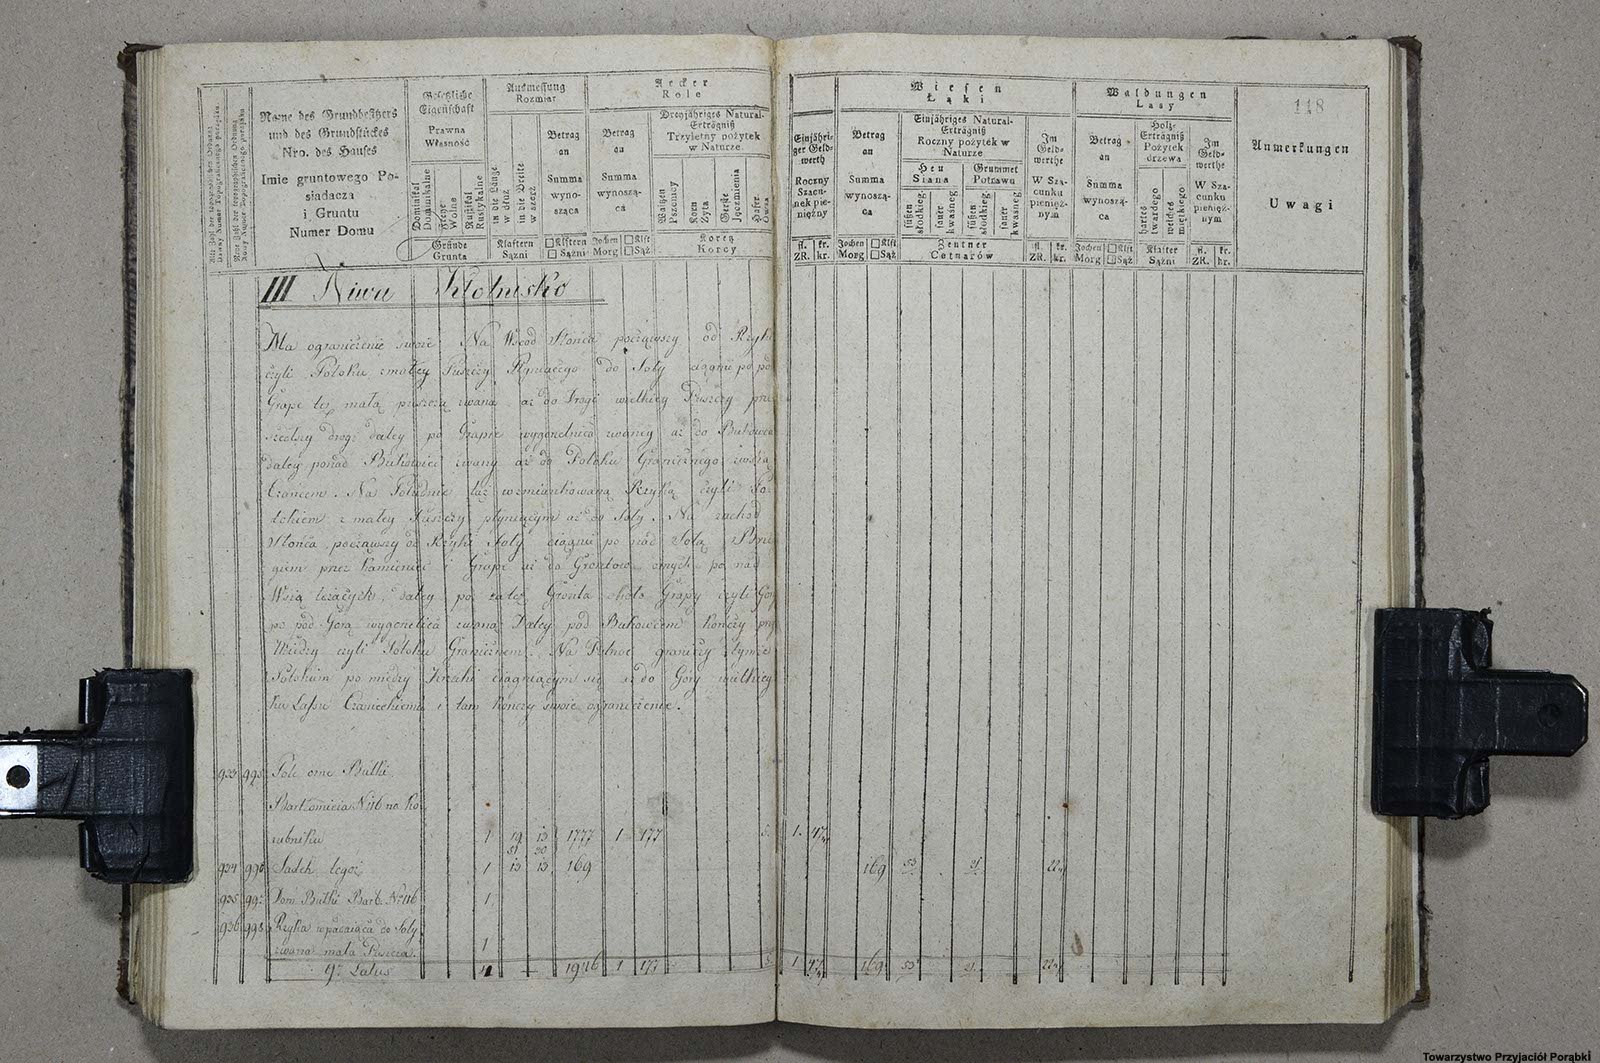 Name des Grundbesitzers
und des Grundstückes
Nro. des Hauses
Imie gruntowego Po-
siadacza
i Gruntu
Numer Domu
Gesetzliche
Eigenschaft
Prawna
Własność
Dominikal
Dominikalne
Freye
Wolne
Rustikal
Rustykalne
Gründe
Grunta
Ausmessung
Rozmiar
in die Länge
w dłuż
in die Breite
w szerz
Klaftern
Sążni
Betrag
an
Summa
wyno-
sząca
Klftern
Sążni
Aecker
Role
Betrag
an
Summa
wynoszą-
ca
Jochen
Morg
Klft
Sąż
Dreyjähriges Natural-
Erträgniß
Trzyletny pożytek
w Naturze
Waitzen
Pszenicy
Korn
Żyta
Gerste
Jęczmienia
Hafer
Owsa
Koretz
Korcy
Einjähri-
ger Geld-
werth
Roczny
Szacu-
nek pie-
niężny
fl. kr.
ZR. kr.
Wiesen
Łąki
Betrag
an
Summa
wynoszą-
ca
Jochen
Morg
Klft
Sąż
Einjähriges Natural-
Erträgniß
Roczny pożytek w
Naturze
Heu
Siana
Grummet
Potrawu
süßen
słodkieg.
sauer
kwasneg.
süßen
słodkieg.
sauer
kwasneg.
Zentner
Cetnarów
Im
Geld-
werthe
W Sza-
cunku
pienięż-
nym
fl. kr.
ZR. kr.
Waldungen
Lasy
Betrag
an
Summa
wynoszą-
ca
Jochen
Morg
Klft
Sąż
Holz-
Erträgniß
Pożytek
drzewa
hartes
twardego
weiches
miękiego
Klafter
Sążni
Im
Geld-
werthe
W Sza-
cunku
pienięż-
nym
fl. kr.
ZR. kr.
118
Anmerkungen
Uwagi
III Niwa Kłotnisko
Ma ograniczenie swoie Na Wscod Słońca począwszy od Rzyki
czyli Potoku z małey Puszczy Płynącego do Soły ciągnie po pod
Grape tęż małą puszczą zwana aż do Drogi wielkiey Puszczy prze
szedłszy drogę daley po Grapie wygonelnica zwaney aż do Bukowca
daley ponad Bukowiec zwany aż do Potoku Granicznego zwsią
Czańcem. Na Południe taż wzmiankowaną Rzyką czyli Po
tokiem z małey Puszczy płynącym aż do Soły. Na zachod
Słońca, począwszy od Rzyki Soły ciągnie po nad Sołą Brze
giem przez Kamieniec i Grape aż do Grontow ornych po nad
Wsią leżących, daley po Gronta około Grapy czyli Góry
po pod Górą wygonelica zwaną Daley pod Bukowcem kończy przy
Miedzy czyli Potoku Granicznem. Na Połnoc graniczy tymże
Potokiem po między Krzaki ciągnącym się aż do Góry wielkiey
Ku Lassu Czanieckiemu i tam kończy swoie ograniczenie.
933 995 Pole orne Bułki
Bartłomieia N 116 na Ko
rubniku 1 19 13 1777 1 177 5 1 47
51 30
934 996 Sadek tegoż 1 13 13 169 169 53 21 22
935 997 Dom Bułki Bart. No 116 1
936 998 Rzyka wpadaiąca do Soły
zwana mała Puszcza. 1
97 Latus 4 1946 1 177 5 1 47 169 53 21 22
Towarzystwo Przyjaciół Porąbki